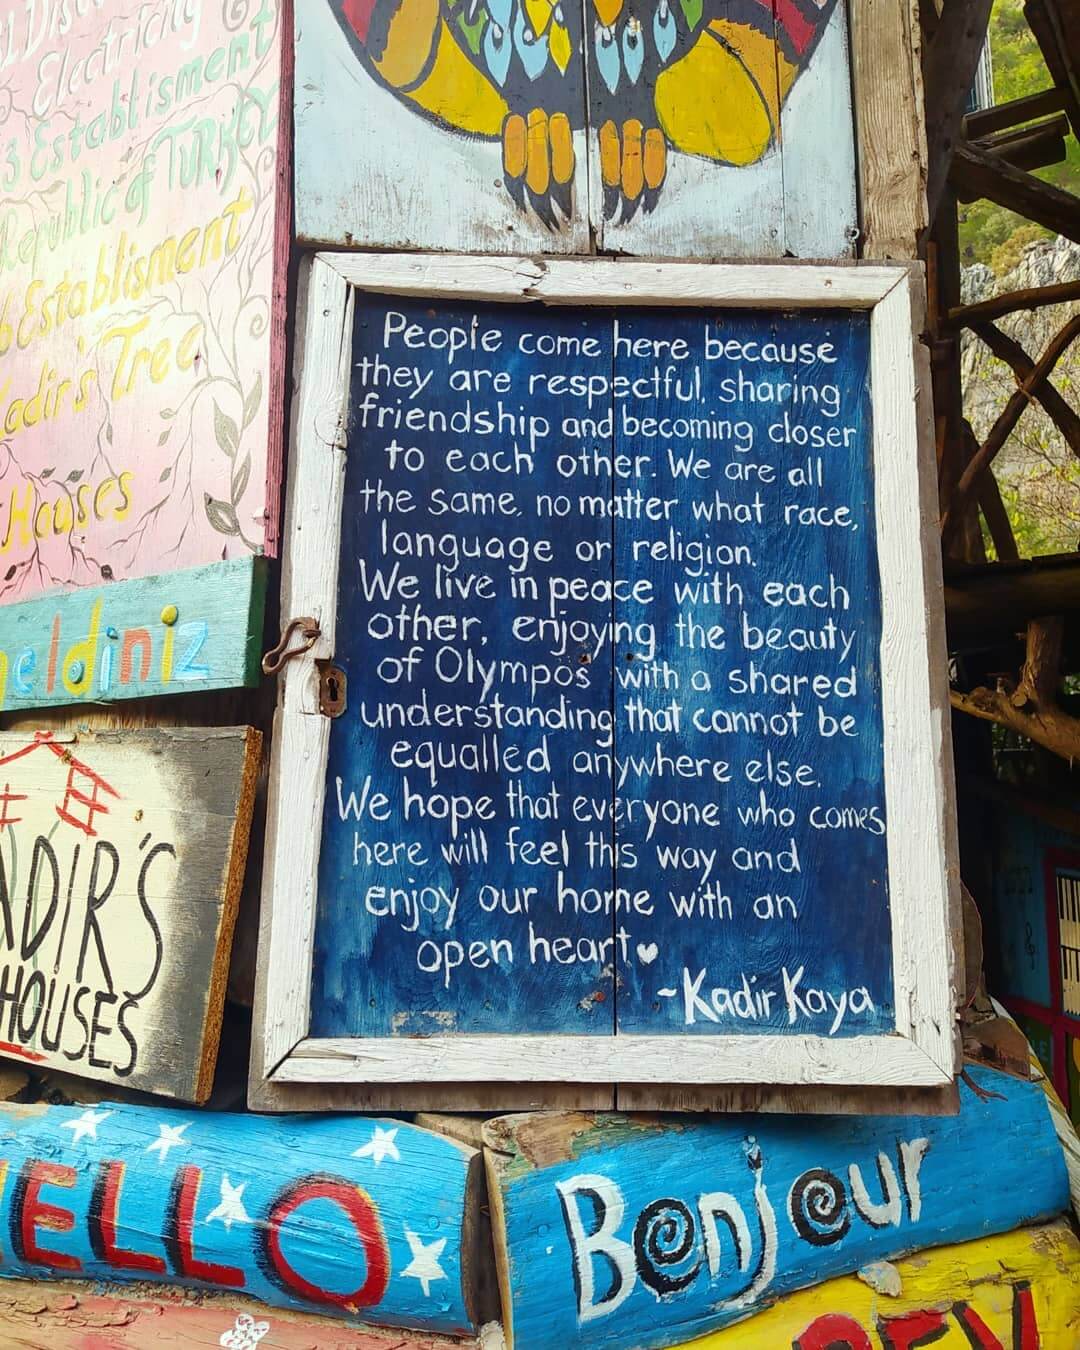 Electricity
3 Establisment
Republic of TURKEY
Establisment
Kadir's Tree
Houses
eldiniz
ADIR'S
HOUSES
People come here because
they are respectful, sharing
friendship and becoming closer
to each other. We are all
the same, no matter what race,
language or religion.
We live in peace with each
other, enjoying the beauty
of Olympos with a shared
understanding that cannot be
equalled anywhere else.
We hope that everyone who comes
here will feel this way and
enjoy our home with an
open heart
~Kadir Kaya
HELLO
Bonjour